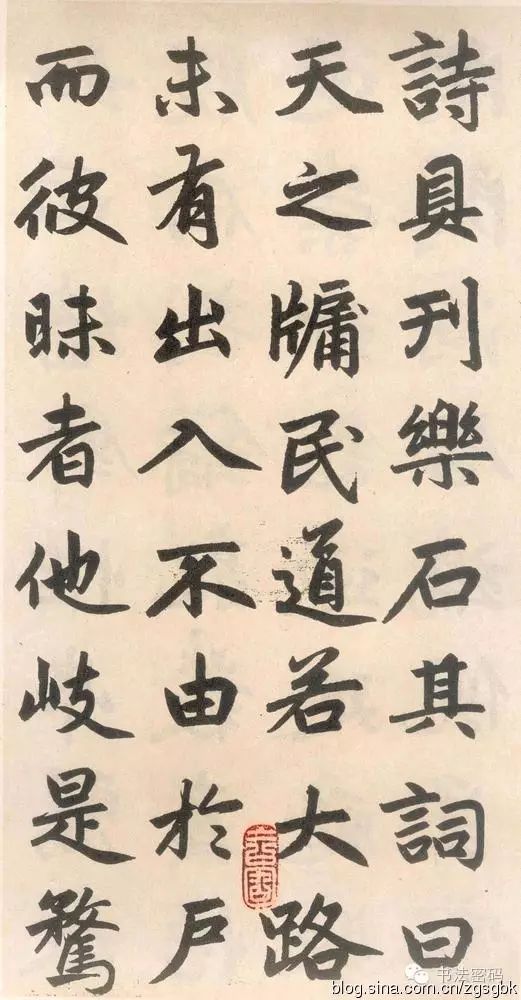 詩具刊樂石其詞曰
天之牖民道若大路
未有出入不由於戶
而彼昧者他歧是騖
书法密码
blog.sina.com.cn/zgsgbk